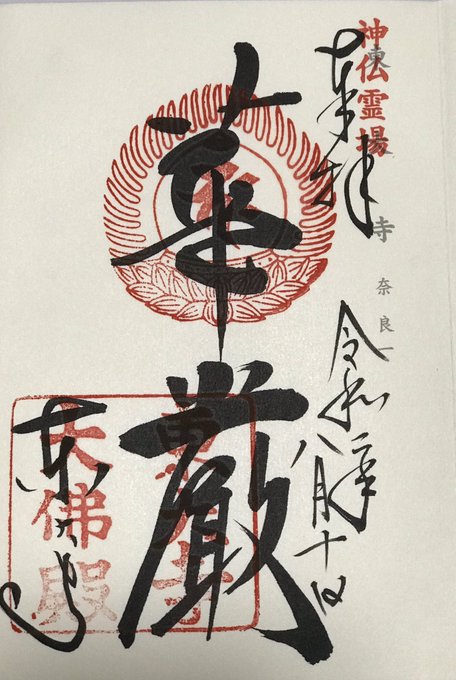 神仏霊場
東大寺 奈良一
奉拝
令和二年
八月十日
華厳
東大寺
大佛殿
東大寺